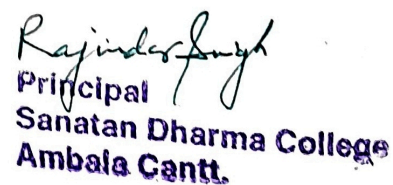 Rajinder Singh
Principal
Sanatan Dharma College
Ambala Cantt.